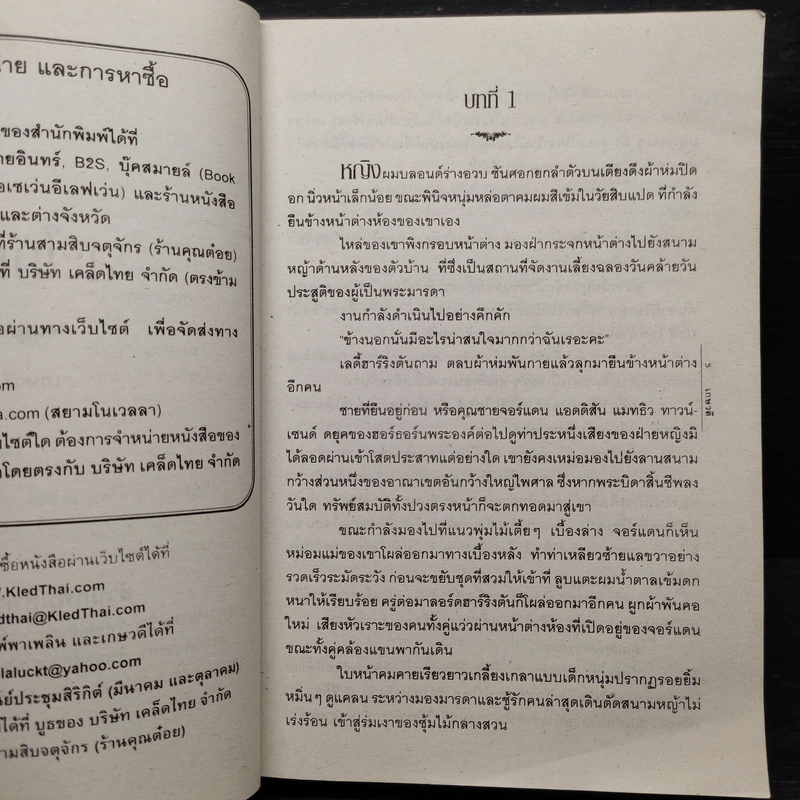 าย และการหาซื้อ
ของสำนักพิมพ์ได้ที่
ายอินทร์, B2S, บุ๊คสมายล์ (Book
อเซเว่นอีเลฟเว่น) และร้านหนังสือ
และต่างจังหวัด
ที่ร้านสามสิบจตุจักร (ร้านคุณต๋อย)
ที่ บริษัท เคล็ดไทย จำกัด (ตรงข้าม
อผ่านทางเว็บไซต์ เพื่อจัดส่งทาง
om
a.com (สยามโนเวลลา)
ไซต์ใด ต้องการจำหน่ายหนังสือของ
โดยตรงกับ บริษัท เคล็ดไทย จำกัด
ซื้อหนังสือผ่านเว็บไซต์ได้ที่
.KledThai.com
dthai@KledThai.com
พ์พาเพลิน และเกษวดีได้ที่
laluckt@yahoo.com
นย์ประชุมสิริกิต์ (มีนาคม และตุลาคม)
ได้ที่ บูธของ บริษัท เคล็ดไทย จำกัด
ามสิบจตุจักร (ร้านคุณต๋อย)
บทที่ 1
หญิงผมบลอนด์ร่างอวบ ชันศอกยกลำตัวบนเตียงดึงผ้าห่มปิด
อก นิ่วหน้าเล็กน้อย ขณะพินิจหนุ่มหล่อตาคมผมสีเข้มในวัยสิบแปด ที่กำลัง
ยืนข้างหน้าต่างห้องของเขาเอง
ไหล่ของเขาพิงกรอบหน้าต่าง มองฝ่ากระจกหน้าต่างไปยังสนาม
หญ้าด้านหลังของตัวบ้าน ที่ซึ่งเป็นสถานที่จัดงานเลี้ยงฉลองวันคล้ายวัน
ประสูติของผู้เป็นพระมารดา
งานกำลังดำเนินไปอย่างคึกคัก
"ข้างนอกนั่นมีอะไรน่าสนใจมากกว่าฉันเรอะคะ"
เลดี้ฮาร์ริงตันถาม ตลบผ้าห่มพันกายแล้วลุกมายืนข้างหน้าต่าง
อีกคน
ชายที่ยืนอยู่ก่อน หรือคุณชายจอร์แดน แอดดิสัน แมทธิว ทาวน์-
เซนด์ ดยุคของฮอร์ธอร์นพระองค์ต่อไปดูท่าประหนึ่งเสียงของฝ่ายหญิงมิ
ได้ลอดผ่านเข้าโสตประสาทแต่อย่างใด เขายังคงเหม่อมองไปยังลานสนาม
กว้างส่วนหนึ่งของอาณาเขตอันกว้างใหญ่ไพศาล ซึ่งหากพระบิดาสิ้นชีพลง
วันใด ทรัพย์สมบัติทั้งปวงตรงหน้าก็จะตกทอดมาสู่เขา
ขณะกำลังมองไปที่แนวพุ่มไม้เตี้ยๆ เบื้องล่าง จอร์แดนก็เห็น
หม่อมแม่ของเขาโผล่ออกมาทางเบื้องหลัง ทำท่าเหลียวซ้ายแลขวาอย่าง
รวดเร็วระมัดระวัง ก่อนจะขยับชุดที่สวมให้เข้าที่ ลูบแตะผมน้ำตาลเข้มดก
หนาให้เรียบร้อย ครู่ต่อมาลอร์ดฮาร์ริงตันก็โผล่ออกมาอีกคน ผูกผ้าพันคอ
ใหม่ เสียงหัวเราะของคนทั้งคู่แว่วผ่านหน้าต่างห้องที่เปิดอยู่ของจอร์แดน
ขณะทั้งคู่คล้องแขนพากันเดิน
ใบหน้าคมคายเรียวยาวเกลี้ยงเกลาแบบเด็กหนุ่มปรากฏรอยยิ้ม
หมิ่นๆ ดูแคลน ระหว่างมองมารดาและชู้รักคนล่าสุดเดินตัดสนามหญ้าไม่
เร่งร้อน เข้าสู่ร่มเงาของซุ้มไม้กลางสวน
๕
เกษวดี